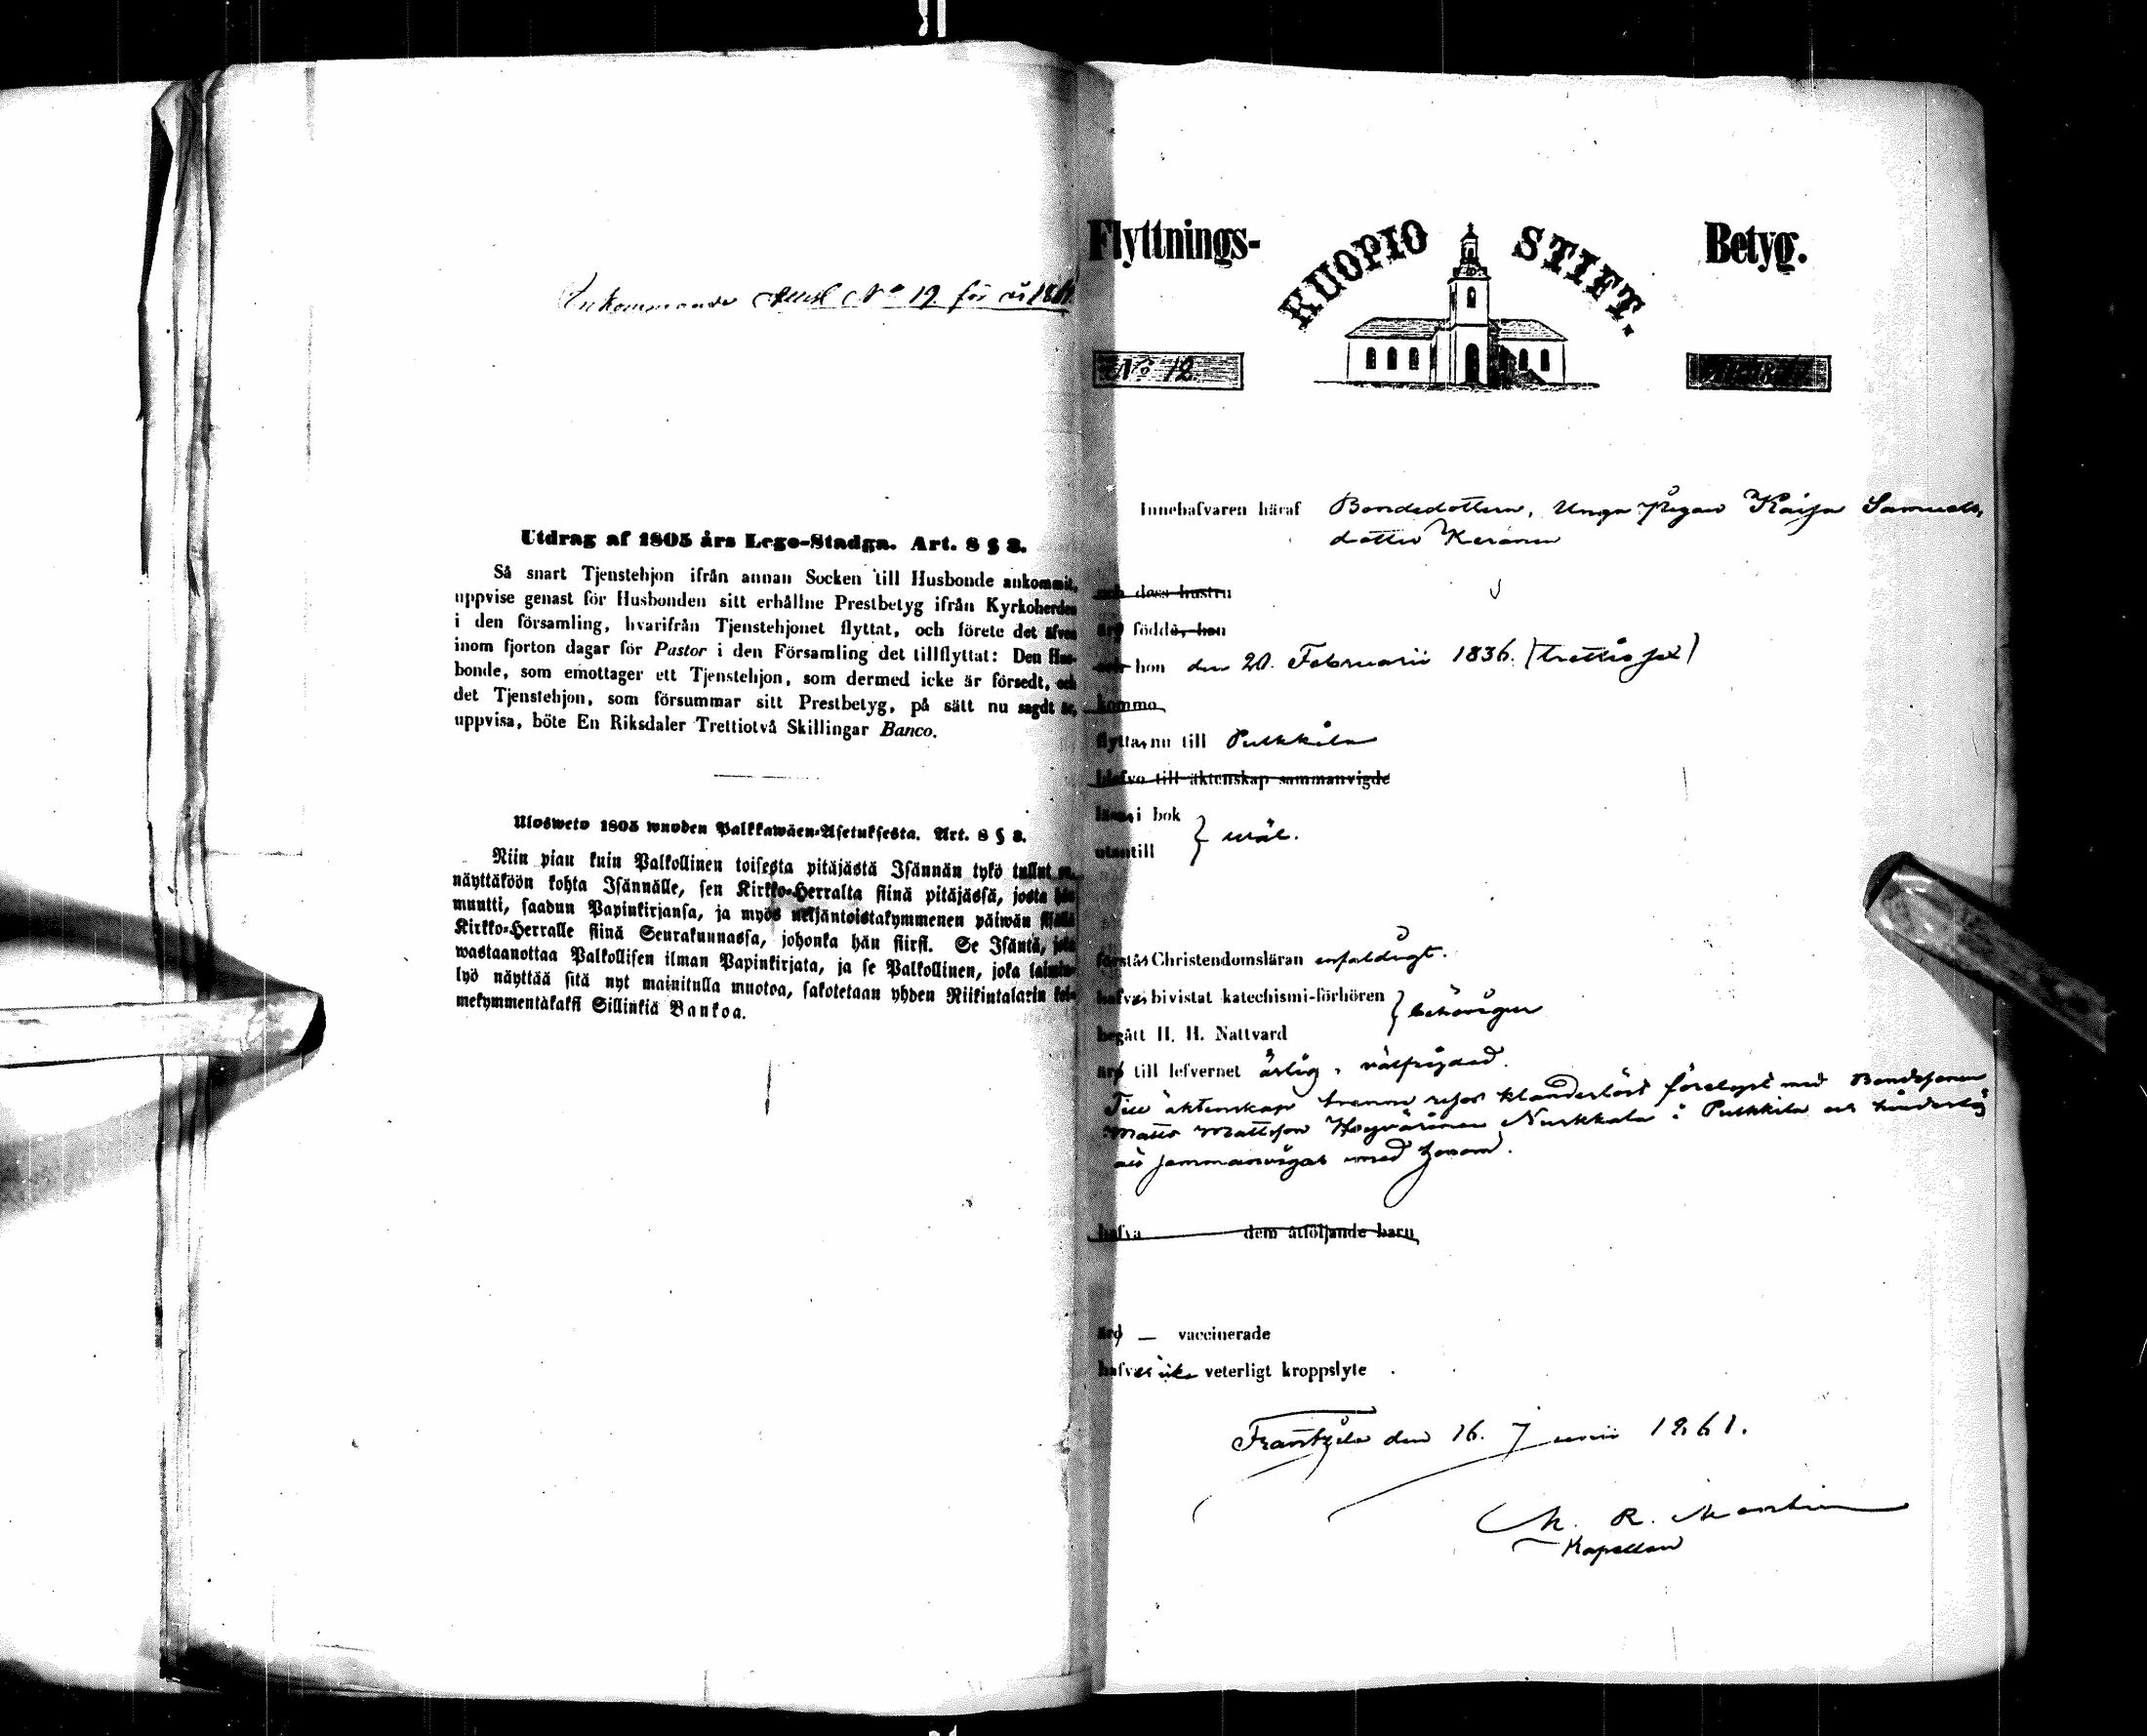 Inkommande Attest No 19 för år 1861
Utdrag af 1805 års Lego-Stadga. Art. 8 § 8.
Så snart Tjenstehjon ifrån annan Socken till Husbonde ankommit,
uppvise genast för Husbonden sitt erhållne Prestbetyg ifrån Kyrkoherden
i den församling, hvarifrån Tjenstehjonet flyttat, och förete det äfven
inom fjorton dagar för Pastor i den Församling det tillflyttat: Den Hus-
bonde, som emottager ett Tjenstehjon, som dermed icke är försedt, och
det Tjenstehjon, som försummar sitt Prestbetyg, på sätt nu sagdt är,
uppvisa, böte En Riksdaler Trettiotvå Skillingar Banco.
Ulosweto 1805 wuoden Palkkawäen-Asetuksesta. Art. 8 § 8.
Niin pian kuin Palkollinen toisesta pitäjästä Isännän tykö tullut on,
näyttäköön kohta Isännälle, sen Kirkko-Herralta siinä pitäjässä, josta hän
muutti, saadun Papinkirjansa, ja myös neljäntoistakymmenen päiwän sisällä
Kirkko-Herralle siinä Seurakunnassa, johonka hän siirsi. Se Isäntä, joka
wastaanottaa Palkollisen ilman Papinkirjata, ja se Palkollinen, joka laimin-
lyö näyttää sitä nyt mainitulla muotoa, sakotetaan yhden Riikintalarin kol-
mekymmentäkaksi Sillinkiä Bankoa.
Flyttnings- KUOPIO STIFT. Betyg.
No 12
Innehafvaren häraf Bondedottern, Unga Pigan Kaisa Samuels-
dotter Keränen
och dess hustru
äro födde, han
och hon den 20. Februarii 1836. (trettiosex)
komma
flytta nu till Pulkkila
blefvo till äktenskap sammanvigde
läsa i bok
utantill } wäl.
förstå Christendomsläran enfaldigt.
hafva bivistat katechismi-förhören
begått H. H. Nattvard } behörigen
äro till lefvernet ärlig, välfrejdad.
Till äktenskap klanderlöst med Bondesonen
Matts Mattsson Nurkkala i Pulkkila och hinderlös
att sammanvigas med honom.
hafva dem åtföljande barn
äro — vaccinerade
hafver icke veterligt kroppslyte .
Frantsila den 16. Junii 1861.
M. R.
Kapellan